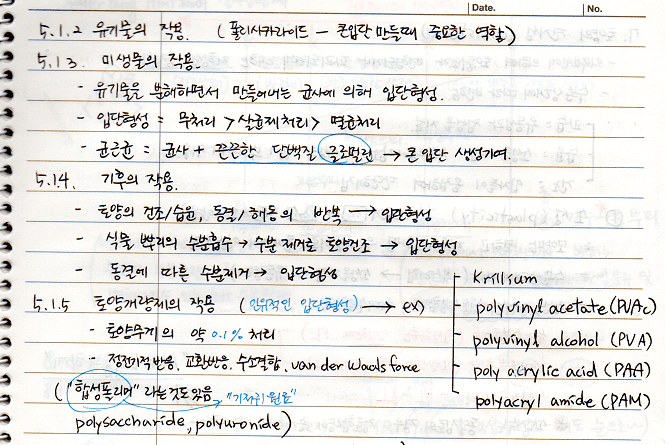 Date. No.
5.1.2 유기물의 작용. (폴리사카라이드 - 큰입단 만들때 중요한 역할)
5.1.3. 미생물의 작용.
- 유기물을 분해하면서 만들어내는 균사에 의해 입단형성.
- 입단형성 = 무처리 > 살균제처리 > 멸균처리
- 균근균 = 균사 + 끈끈한 단백질 글로멀린 → 큰 입단 생성기여.
5.1.4. 기후의 작용.
- 토양의 건조/습윤, 동결/해동의 반복 → 입단형성
- 식물 뿌리의 수분흡수 → 수분제거로 토양건조 → 입단형성
- 동결에 따른 수분제거 → 입단형성
5.1.5 토양개량제의 작용 (인위적인 입단형성) → ex)
- 토양무게의 약 0.1% 처리
- 정전기적반응, 교환반응, 수소결합, van der Waals force
("합성폴리머" 라는것도있음 → "기저귀 원료"
polysaccharide, polyuronide)
Krillium
- polyvinyl acetate (PVAc)
- polyvinyl alcohol (PVA)
- poly acrylic acid (PAA)
polyacryl amide (PAM)